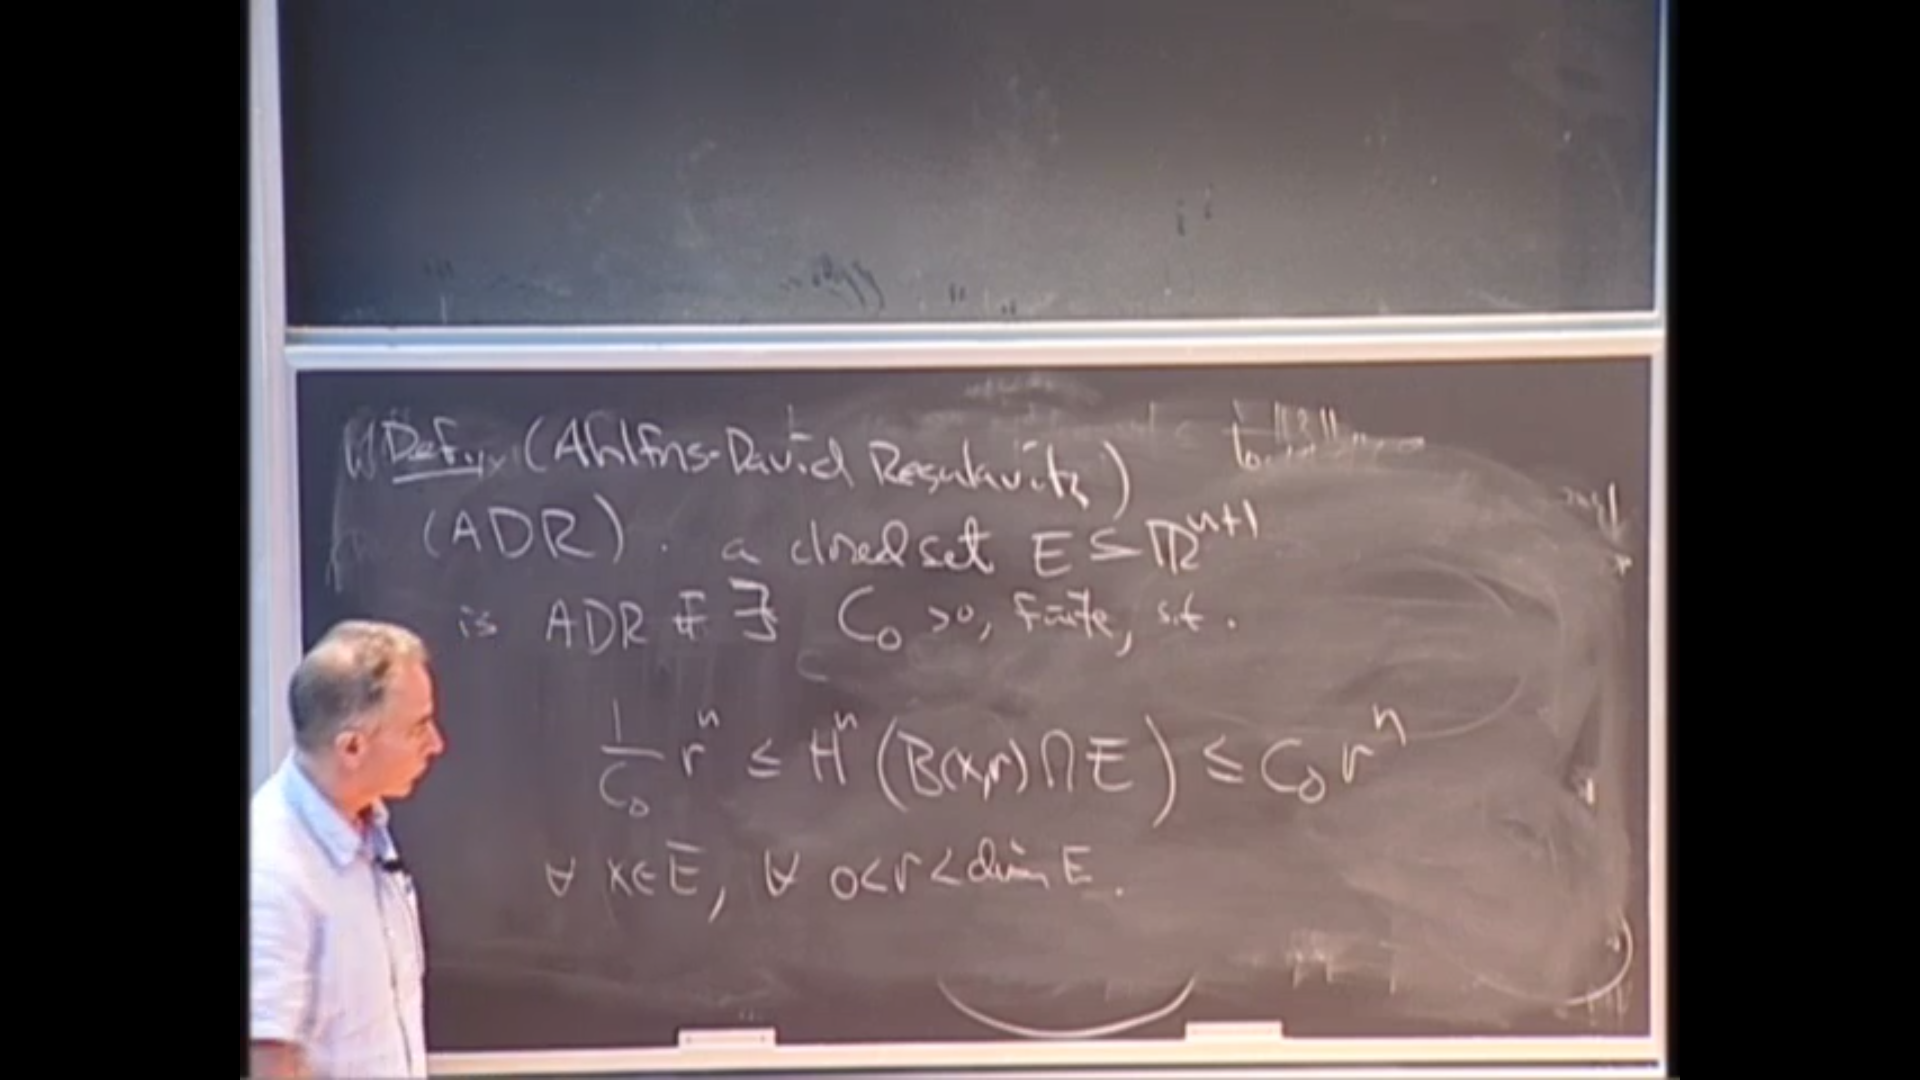 Defn (Ahlfors-David Regularity)
(ADR). a closed set E ⊆ ℝⁿ⁺¹
is ADR if ∃ C₀ >0, finite, s.t.
1/C₀ rⁿ ≤ Hⁿ (B(x,r) ∩ E) ≤ C₀ rⁿ
∀ x∈E, ∀ 0<r<diam E.